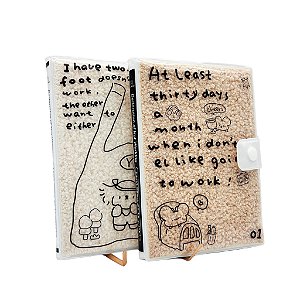 I have two
foot doesn't
work,
the other
want to
either
At Least
thirty days
a
month
when i don't
el like goi
to work!
01